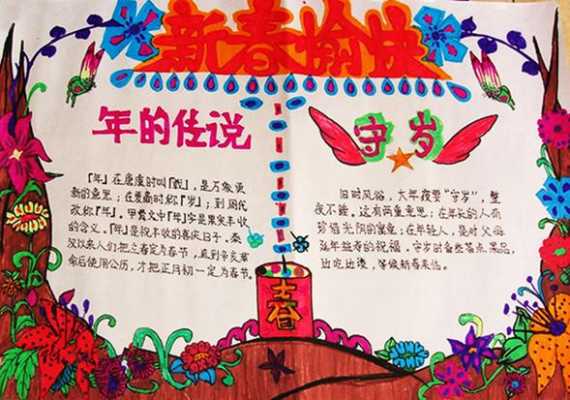 新春愉快
年的传说
「年」在唐虞时叫「载」，是万象更
新的意思；在夏商时称「岁」；到周代
改称「年」。甲骨文中「年」字是果实丰收
的含义。「年」是祝丰收的喜庆日子。秦
汉以来人们把立春定为春节，直到辛亥革
命后使用公历，才把正月初一定为春节。
守岁
旧时风俗，大年夜要“守岁”，整
夜不睡，这有两重意思：在年长的人有
珍惜光阴的意思；在年轻人，是对父母
延年益寿的祝福。守岁时备些茶点果品，
边吃边谈，等候新春来临。
春